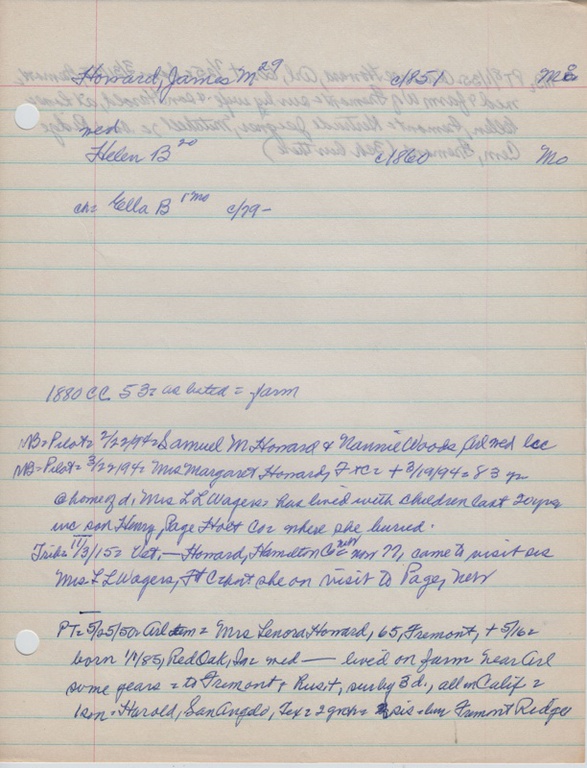 Howard, James M 29 c/1851 Mo
med
Helen B 20 c/1860 Mo
ch = Ella B 1 mo c/79 -
1880 CC 53 = as listed = farm
NB = Pilot = 2/22/94 = Samuel M Howard & Nannie Woods, Arl med lcc
NB = Pilot = 3/22/94 = Mrs Margaret Howard, F + C = + 3/19/94 = 83 yr
@ home of d, Mrs L L Wagers = has lived with children last 20 yrs
inc son Henry, Page Holt Co = where she buried.
Trib = 11/3/15 = Vet. — Howard, Hamilton Co = nev now 77, came to visit sis
Mrs L L Wagers, Ft C but she on visit to Page, Nev
PT = 5/25/50 = Arl = Mrs Lenora Howard, 65, Fremont, + 5/16 =
born 1/9/85, Red Oak, Ia = med — lived on farm near Arl
some years = to Fremont, & Rust, surby 3 d., all on Calif =
1 son = Harold, San Angelo, Tex = 2 gnch = sis = bur Fremont Ridge